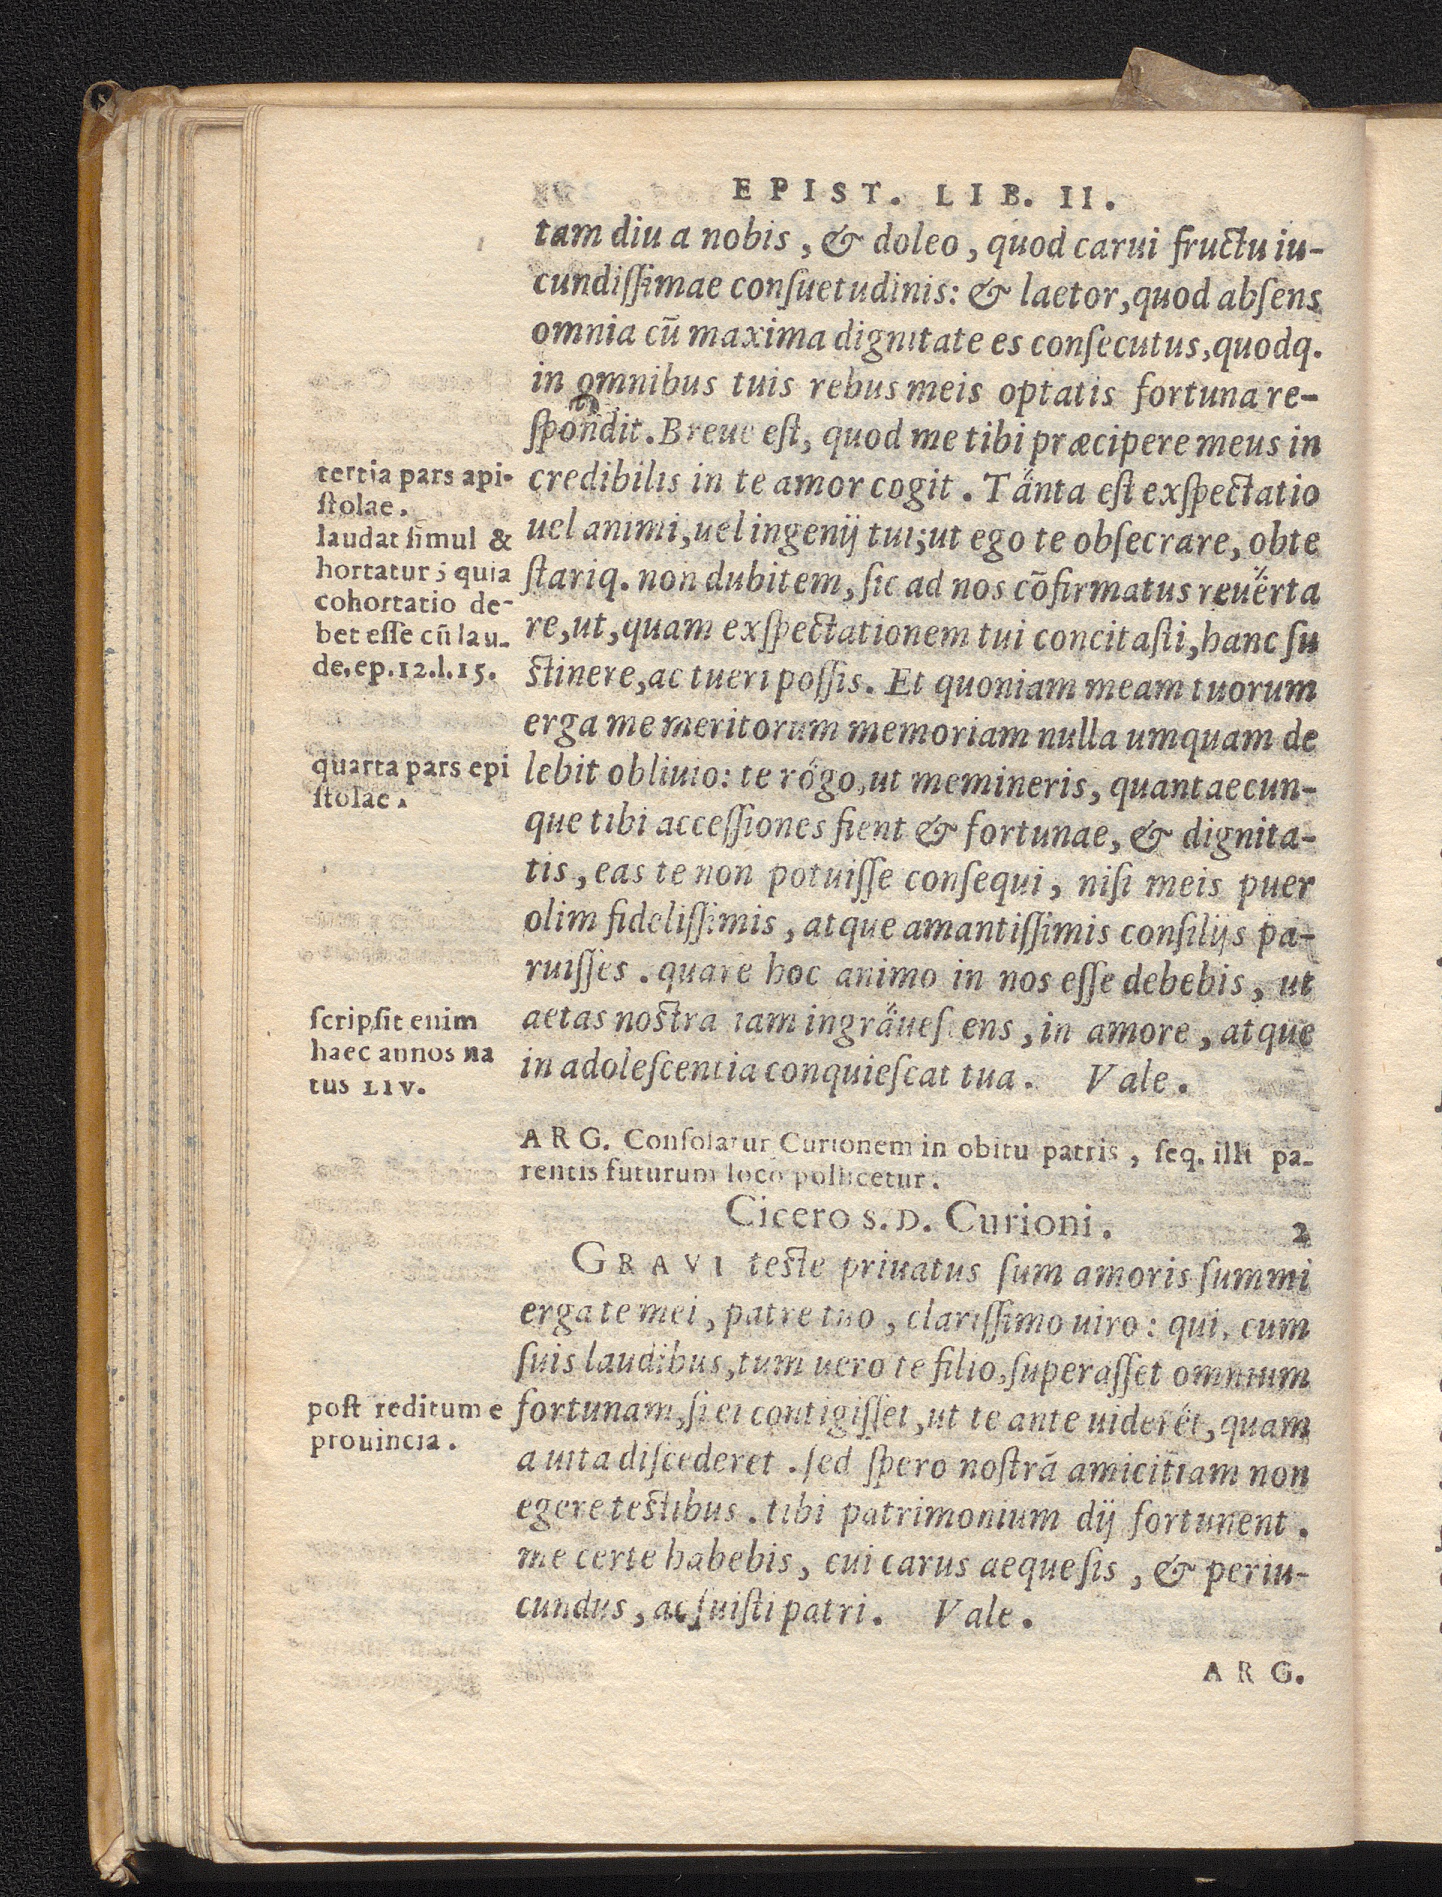 EPIST. LIB. II.
tam diu a nobis, & doleo, quod carui fructu iu-
cundissimae consuetudinis: & laetor, quod absens
omnia cũ maxima dignitate es consecutus, quodq.
in omnibus tuis rebus meis optatis fortuna re-
spondit. Breue est, quod me tibi præcipere meus in
tertia pars api-
stolae.
credibilis in te amor cogit. Tanta est exspectatio
uel animi, uel ingenij tui; ut ego te obsecrare, obte
laudat simul &
hortatur; quia
cohortatio de-
bet esse cũ lau-
de. ep. 12. l. 15.
stariq. non dubitem, sic ad nos cõfirmatus reuerta
re, ut, quam exspectationem tui concitasti, hanc su
stinere, ac tueri possis. Et quoniam meam tuorum
erga me meritorum memoriam nulla umquam de
quarta pars epi
stolae.
lebit obliuio: te rogo, ut memineris, quantaecun-
que tibi accessiones fient & fortunae, & dignita-
tis, eas te non potuisse consequi, nisi meis puer
olim fidelissimis, atque amantissimis consilijs pa-
ruisses. quare hoc animo in nos esse debebis, ut
scripsit enim
haec annos na
tus LIV.
aetas nostra iam ingrauescens, in amore, atque
in adolescentia conquiescat tua. Vale.
ARG. Consolatur Curionem in obitu patris, seq. illi pa-
rentis futurum loco pollicetur.
Cicero S. D. Curioni. 2
GRAVI teste priuatus sum amoris summi
erga te mei, patre tuo, clarissimo uiro: qui, cum
suis laudibus, tum uero te filio, superasset omnium
post reditum e
prouincia.
fortunam, si ei contigisset, ut te ante uideret, quam
a uita discederet. sed spero nostrã amicitiam non
egere testibus. tibi patrimonium dij fortunent.
me certe habebis, cui carus aeque sis, & periu-
cundus, ac fuisti patri. Vale.
ARG.